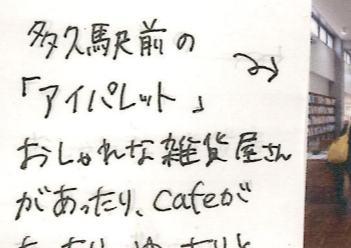 多久駅前の
「アイパレット」
おしゃれな雑貨屋さん
があったり、cafeが